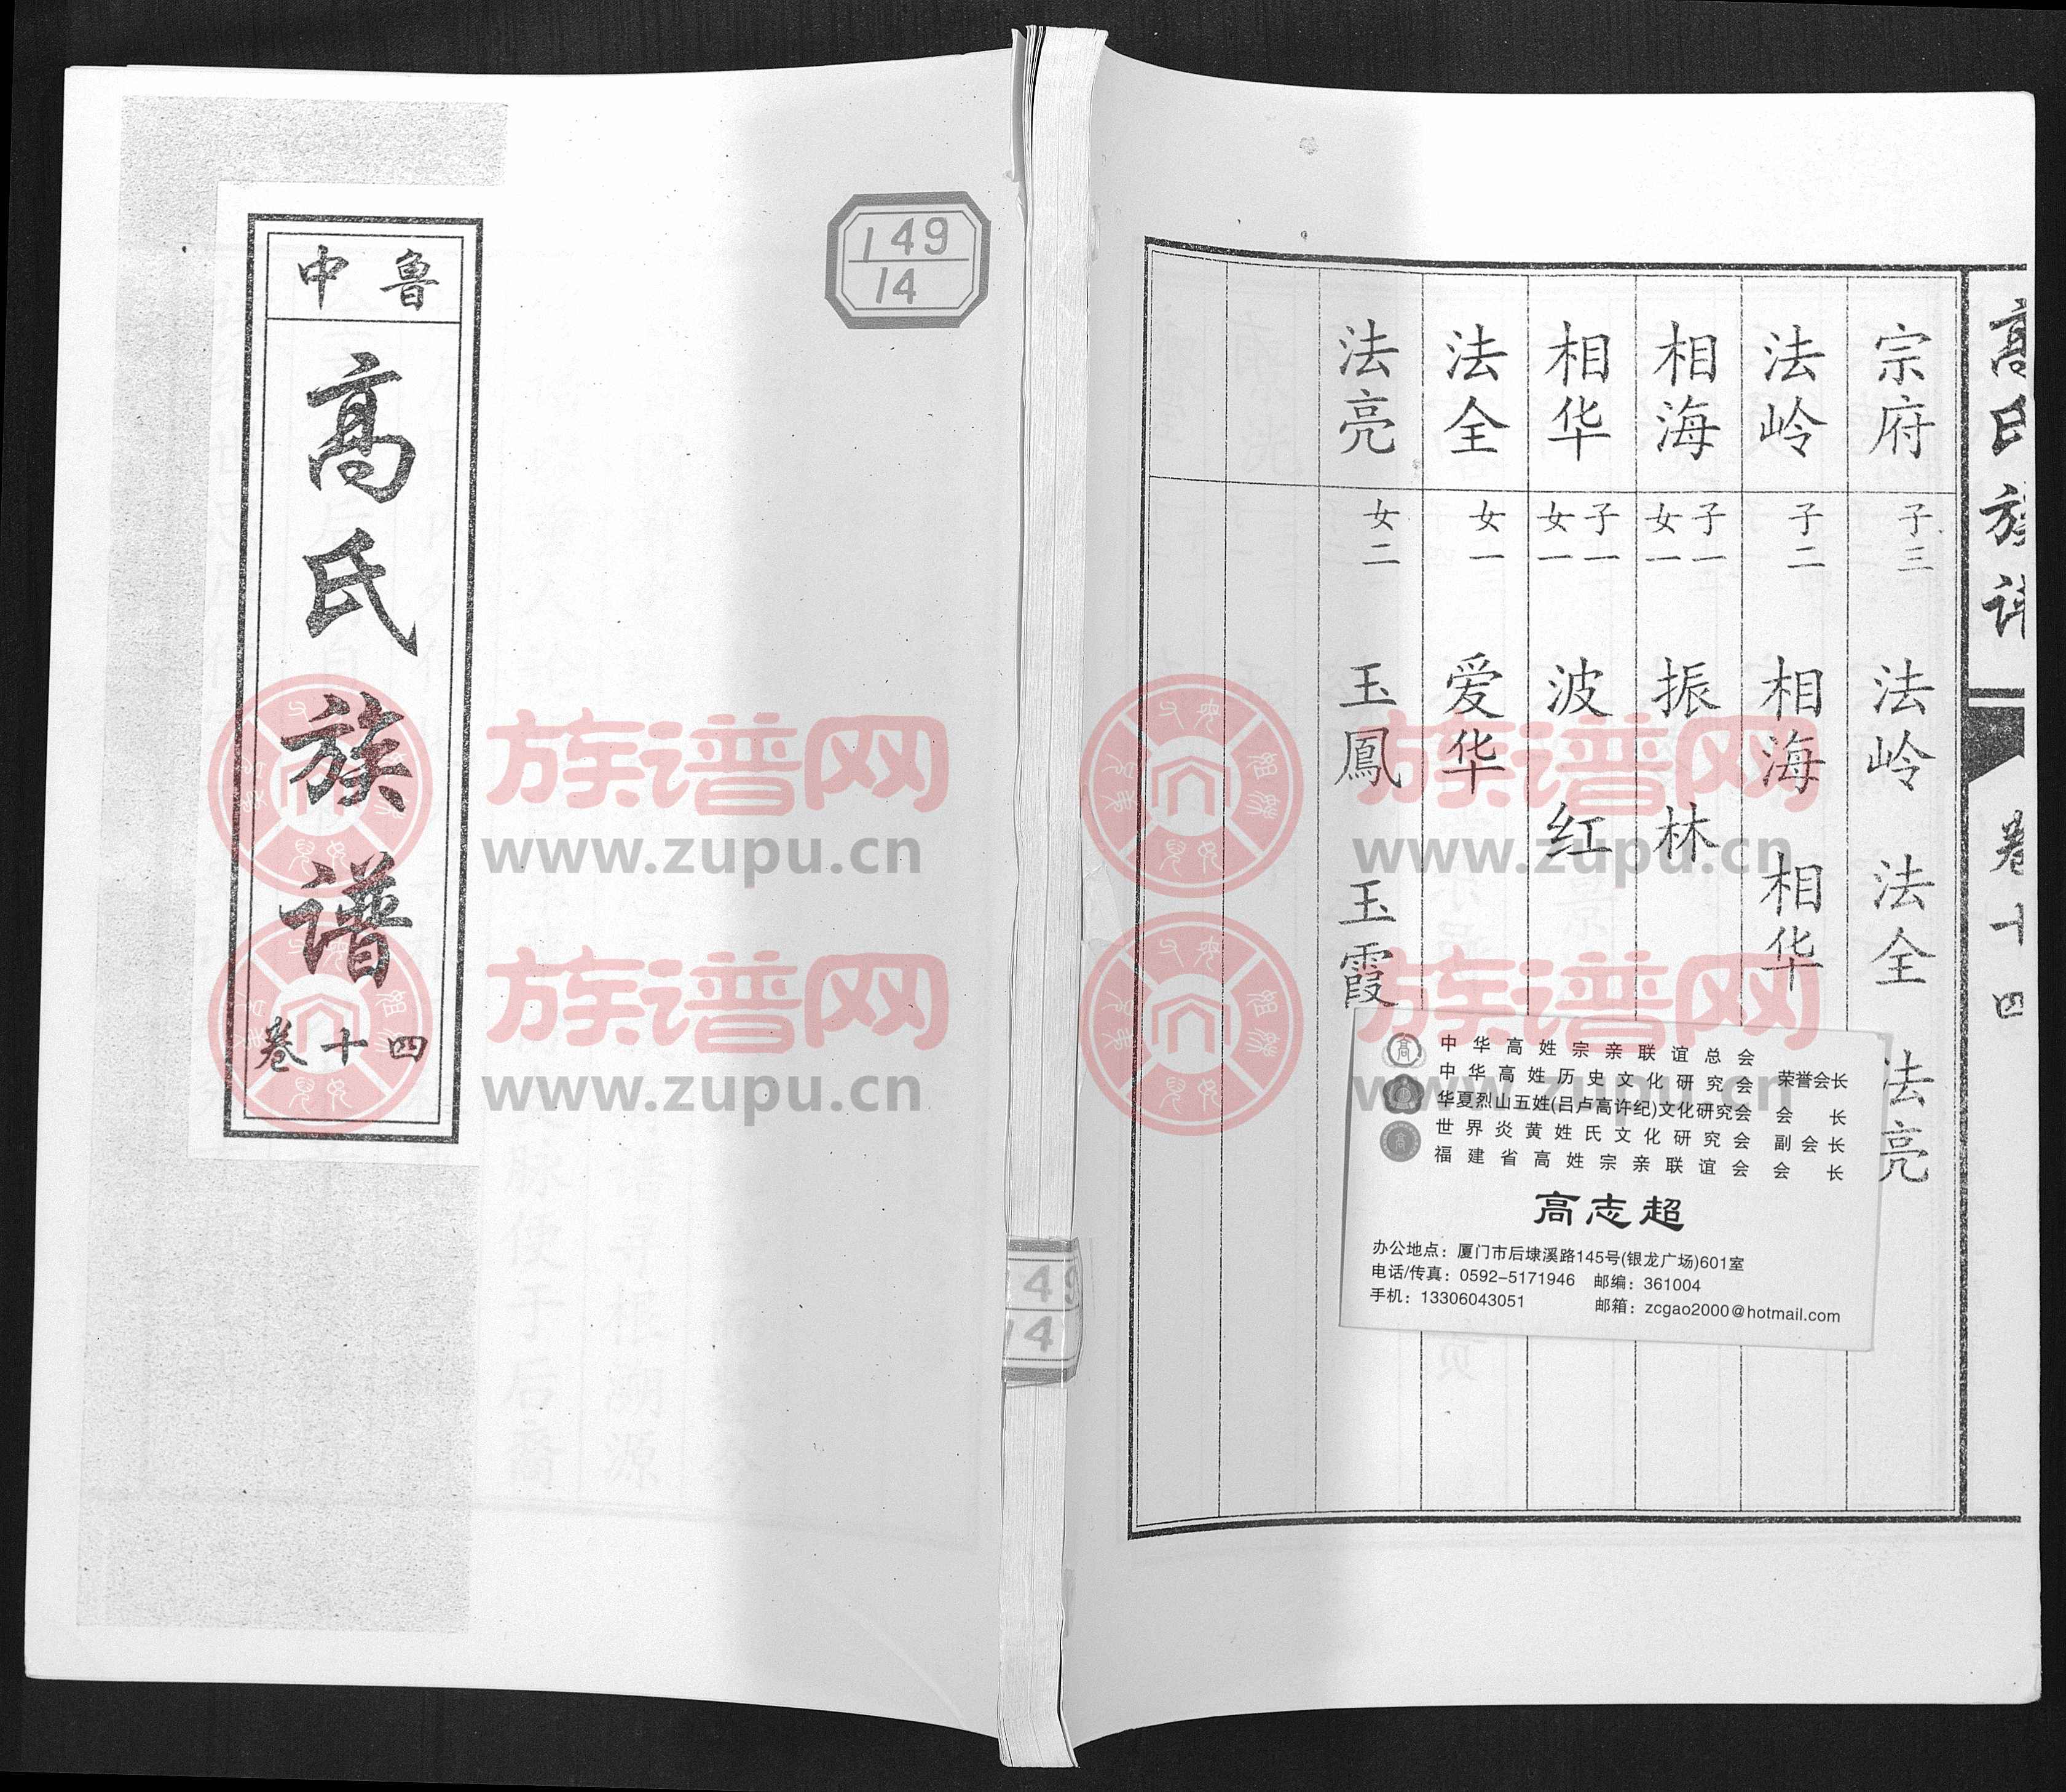 鲁中
高氏族谱
卷十四
149
14
149
14
高氏族谱
卷十四
宗府 子三 法岭 法全 法亮
法岭 子二 相海 相华
相海 子一 女一 振林
相华 子一 女一 波 红
法全 女一 爱华
法亮 女二 玉鳳 玉霞
中华高姓宗亲联谊总会
中华高姓历史文化研究会 荣誉会长
华夏烈山五姓(吕卢高许纪)文化研究会 会长
世界炎黄姓氏文化研究会 副会长
福建省高姓宗亲联谊会 会长
高志超
办公地点：厦门市后埭溪路145号(银龙广场)601室
电话/传真：0592-5171946 邮编：361004
手机：13306043051 邮箱：zcgao2000@hotmail.com
族谱网
www.zupu.cn
族谱网
www.zupu.cn
族谱网
www.zupu.cn
族谱网
www.zupu.cn